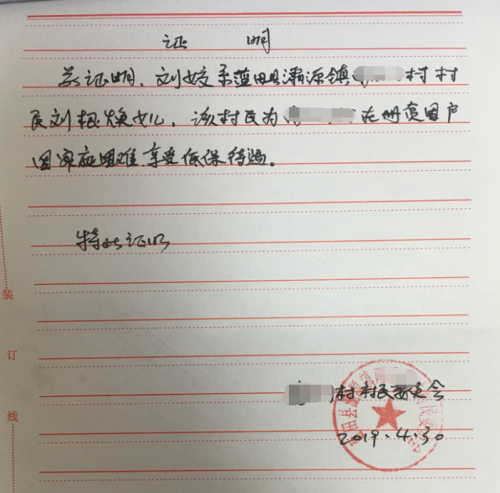 证 明
兹证明,刘姣系蓝田县灞源镇 村村
民刘根焕女儿,该村民为 在册贫困户
因家庭困难享受低保待遇。
特此证明
村村民委员会
2019.4.30
装
订
线